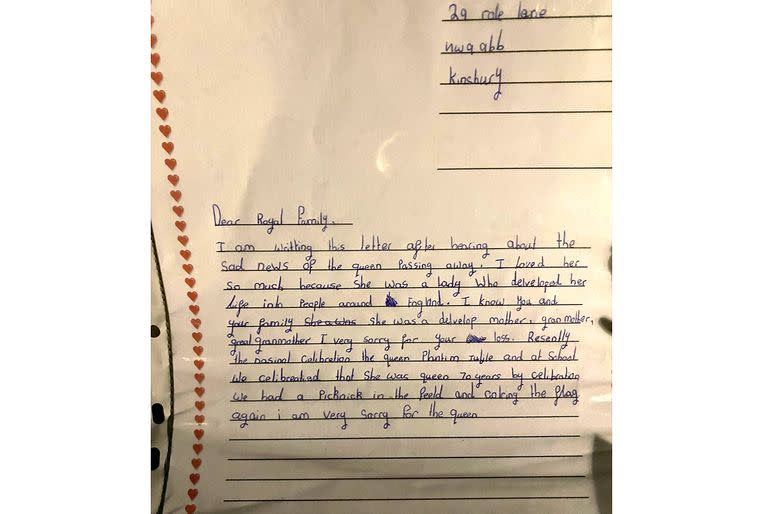 29 role lane
nw9 abb
kinsbury
Dear Royal Family.
I am writting this letter after hearing about the
sad news of the queen Passing away. I loved her
so much because she was a lady who develoPed her
life into People around England. I know you and
your family she was she was a develop mother, granmother,
great granmother I very sorry for your loss. Resently
the nasinal celibration the queen Plantim Jubile and at School
we celibreatid that she was queen 70 years by celibrating
we had a Picknick in the feeld and coloring the flag
again i am very sorry for the queen